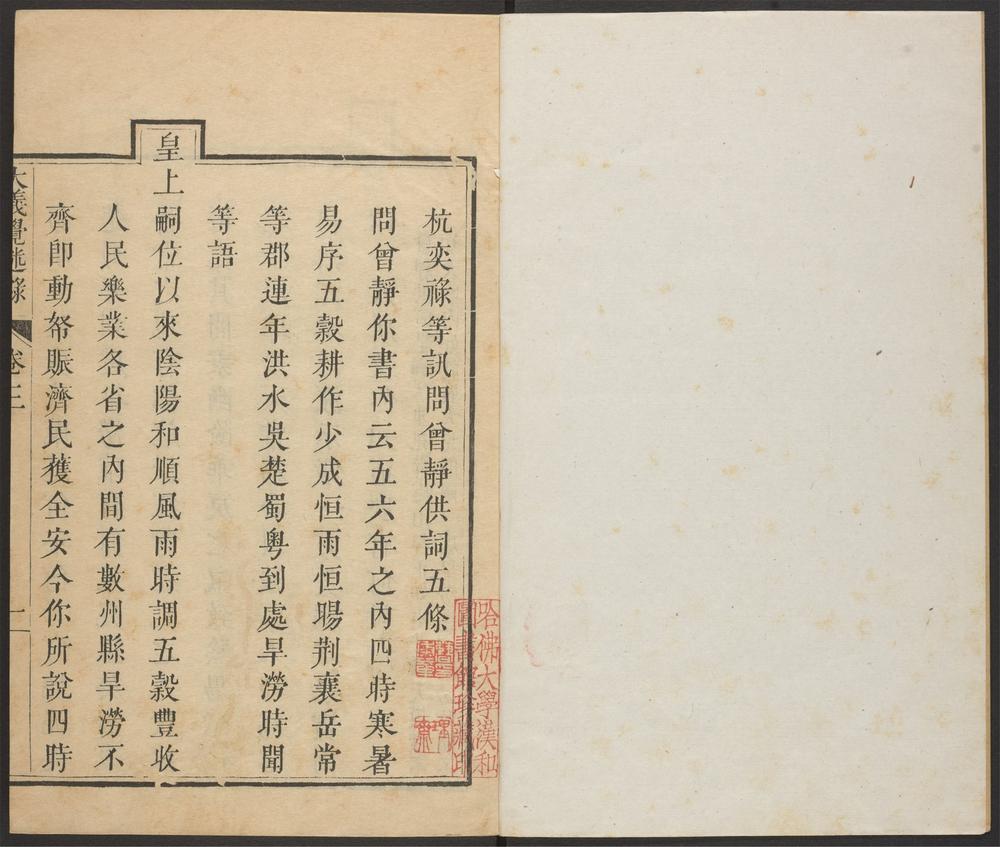 杭奕祿等訊問曾靜供詞五條
問曾靜你書內云五六年之內四時寒暑
易序五穀耕作少成恒雨恒暘荆襄岳常
等郡連年洪水吳楚蜀粤到處旱澇時聞
等語
皇上嗣位以來陰陽和順風雨時調五穀豐收
人民樂業各省之內間有數州縣旱澇不
齊卽動帑賑濟民獲全安今你所說四時
大義覺迷錄 卷三 一
哈佛大學漢和
圖書館珍藏印